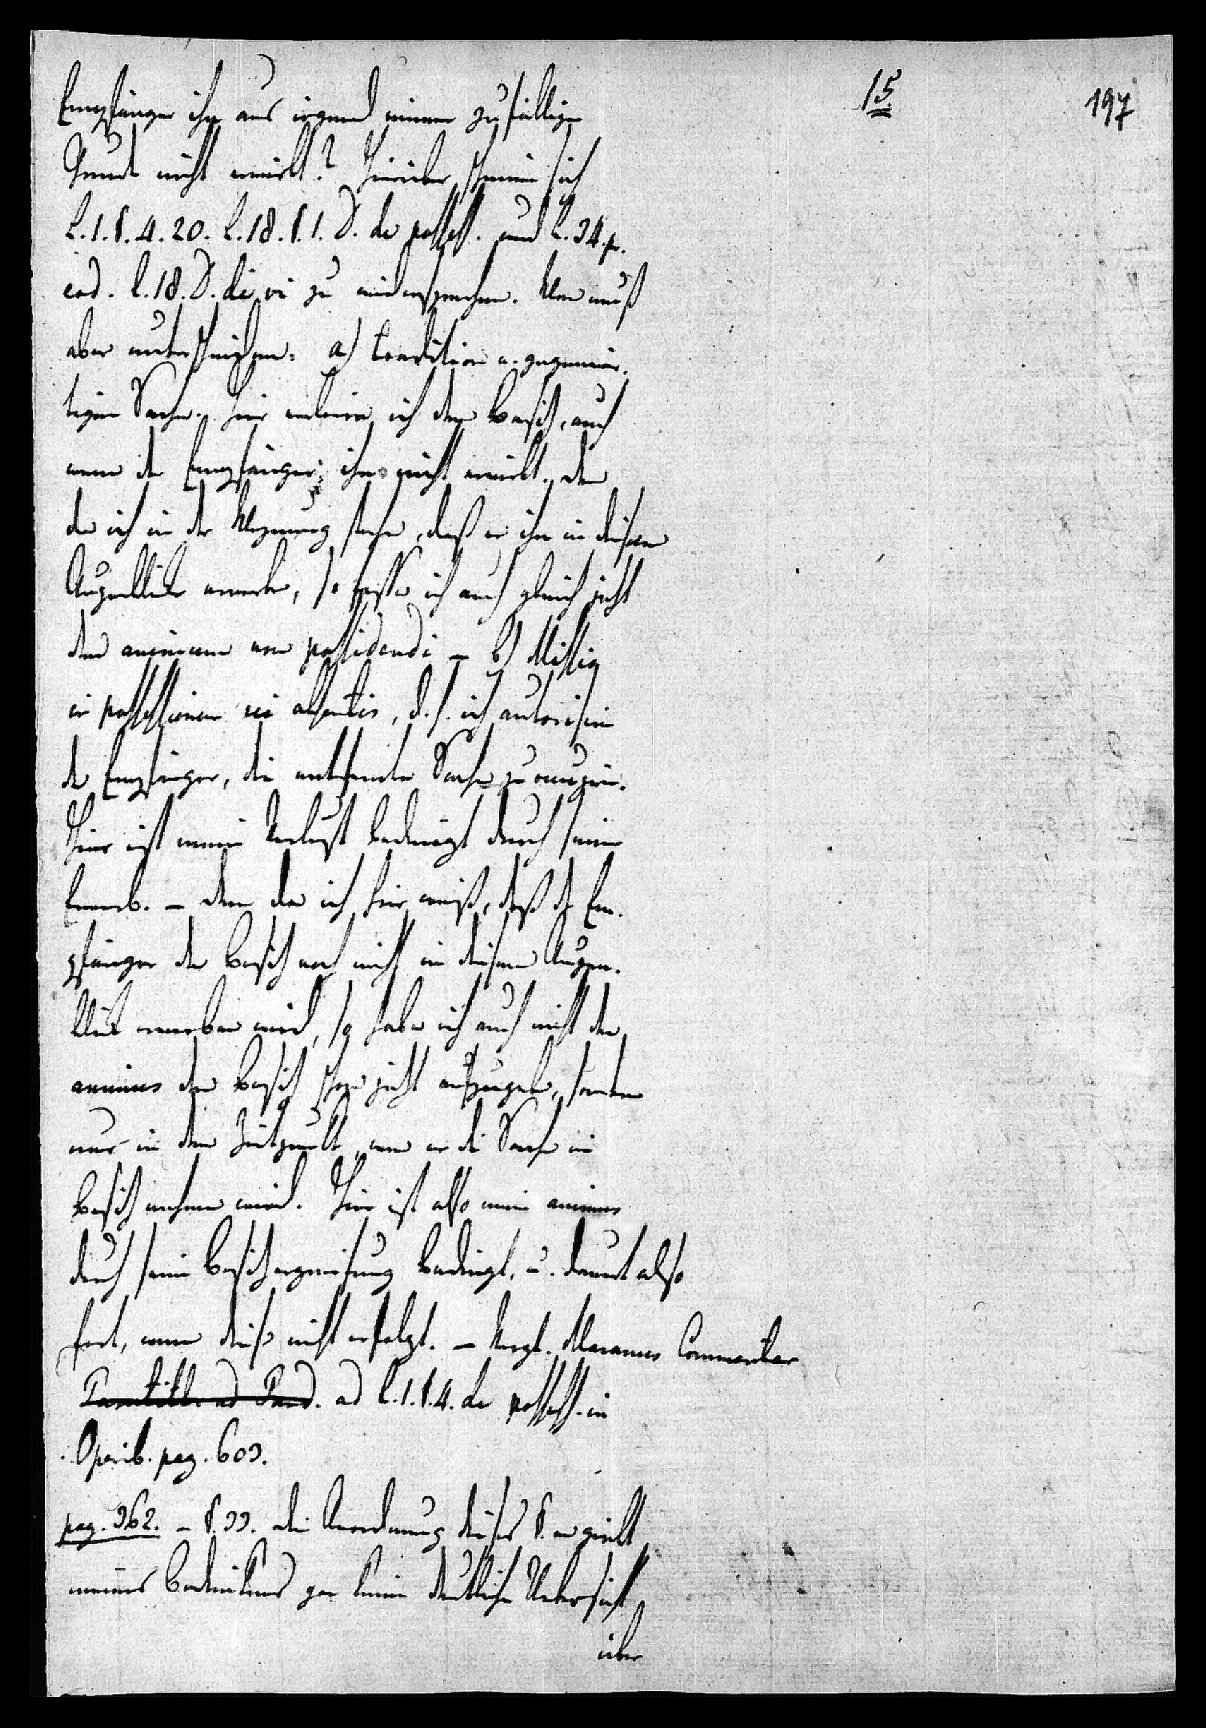 15.
197
Empfänger ihn aus irgend einem zufälligen
Grunde nicht erwirbt? Hierüber scheinen sich
L. 1. §. 4. 20. L. 18. §. 1. D. de possess. und L. 34. pr.
eod. l. 18. D. de vi zu widersprechen. Man muß
aber unterscheiden: a) Tradition e. gegenwär-
tigen Sache. Hier verliere ich den Besitz, auch
wenn der Empfänger ihn nicht erwirbt. Denn
da ich in der Meynung stehe, daß er ihn in diesem
Augenblicke erwerbe, so fasse ich auch gleich jetzt
den animum non possidendi – b) Missio
in possessionem rei absentis, d. h. ich autorisire
den Empfänger, die entfernte Sache zu occupiren.
Hier ist mein Verlust bedingt durch seinen
Erwerb. – Denn da ich hier weiß, daß der Em-
pfänger den Besitz noch nicht in diesem Augen-
blick erwerben wird, so habe ich auch nicht den
animus den Besitz schon jetzt aufzugeben, sondern
nur in dem Zeitpunkte, wenn er die Sache in
Besitz nehmen wird. Hier ist also mein animus
durch seine Besitzergreifung bedingt, u. dauert also
fort, wenn diese nicht erfolgt. – Vergl. Maranus Commentar
ad l. 1. §. 4. de possess. in
Operib. pag. 603.
pag. 362. – §. 33. Die Anordnung dieses §. er giebt
meines Bedenkens gar keine deutliche Uebersicht
über